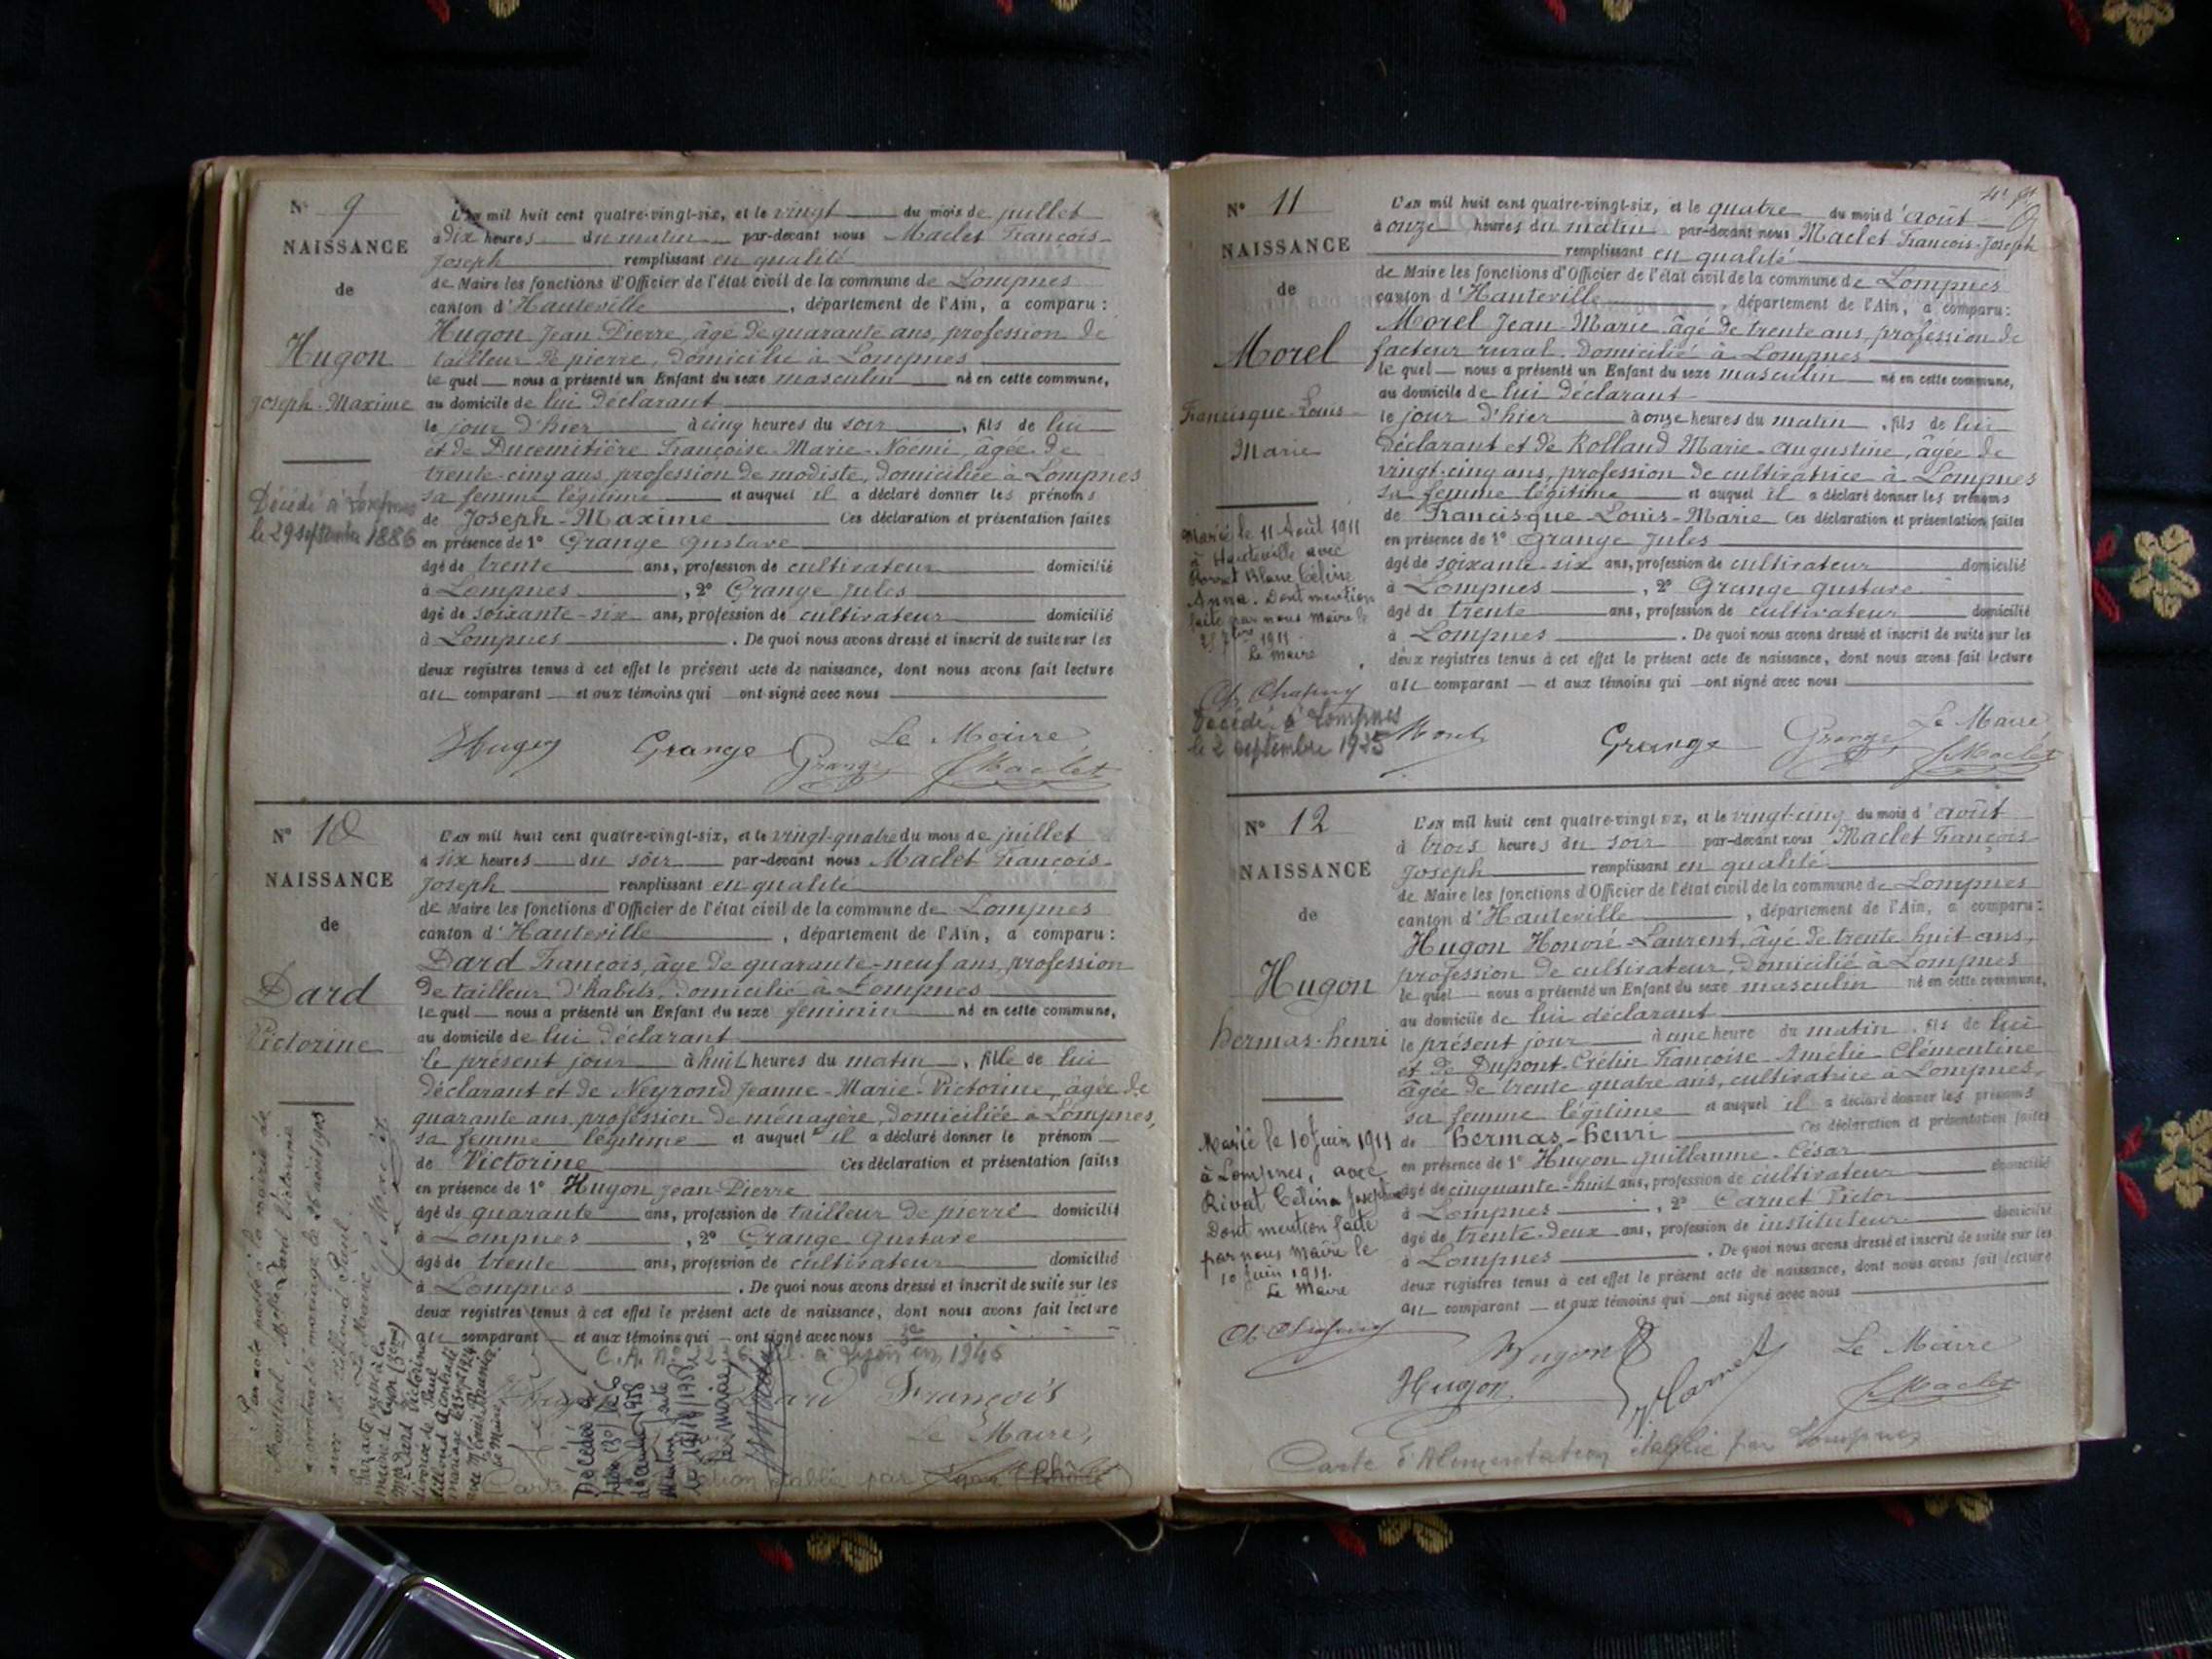 N° 9
NAISSANCE
de
Hugon
Joseph-Maxime
Décédé à Lompnes
le 29 septembre 1886
L'an mil huit cent quatre-vingt-six, et le vingt du mois de juillet
à dix heures du matin par-devant nous Maclet François-
Joseph remplissant en qualité
de Maire les fonctions d'Officier de l'état civil de la commune de Lompnes
canton d'Hauteville, département de l'Ain, a comparu :
Hugon Jean Pierre, âgé de quarante ans, profession de
tailleur de pierre, domicilié à Lompnes
lequel nous a présenté un Enfant du sexe masculin né en cette commune,
au domicile de lui déclarant
le jour d'hier à cinq heures du soir, fils de lui
et de Ducemitière Françoise-Marie-Noémi, âgée de
trente-cinq ans, profession de modiste, domiciliée à Lompnes
sa femme légitime et auquel il a déclaré donner les prénoms
de Joseph-Maxime Ces déclaration et présentation faites
en présence de 1° Grange Gustave
âgé de trente ans, profession de cultivateur domicilié
à Lompnes, 2° Grange Jules
âgé de soixante-six ans, profession de cultivateur domicilié
à Lompnes. De quoi nous avons dressé et inscrit de suite sur les
deux registres tenus à cet effet le présent acte de naissance, dont nous avons fait lecture
au comparant et aux témoins qui ont signé avec nous
Hugon Grange Grange Le Maire
Maclet
N° 10
NAISSANCE
de
Dard
Victorine
L'an mil huit cent quatre-vingt-six, et le vingt-quatre du mois de juillet
à six heures du soir par-devant nous Maclet François-
Joseph remplissant en qualité
de Maire les fonctions d'Officier de l'état civil de la commune de Lompnes
canton d'Hauteville, département de l'Ain, a comparu :
Dard François, âgé de quarante-neuf ans, profession
de tailleur d'habits, domicilié à Lompnes
lequel nous a présenté un Enfant du sexe féminin né en cette commune,
au domicile de lui déclarant
le présent jour à huit heures du matin, fille de lui
déclarant et de Neyrond Jeanne-Marie-Victorine, âgée de
quarante ans, profession de ménagère, domiciliée à Lompnes,
sa femme légitime et auquel il a déclaré donner le prénom
de Victorine Ces déclaration et présentation faites
en présence de 1° Hugon Jean-Pierre
âgé de quarante ans, profession de tailleur de pierre domicilié
à Lompnes, 2° Grange Gustave
âgé de trente ans, profession de cultivateur domicilié
à Lompnes. De quoi nous avons dressé et inscrit de suite sur les
deux registres tenus à cet effet le présent acte de naissance, dont nous avons fait lecture
au comparant et aux témoins qui ont signé avec nous
à Lyon en 1946
Dard François
Le Maire,
établie par Lyon Rhône
N° 11
NAISSANCE
de
Morel
Francisque-Louis-
Marie
Marié le 11 Août 1911
à Hauteville avec
Blanc Céline
Anna. Dont mention
faite par nous Maire le
1911.
Le Maire
Décédé à Lompnes
le 2 septembre
L'an mil huit cent quatre-vingt-six, et le quatre du mois d'août
à onze heures du matin par-devant nous Maclet François-Joseph
remplissant en qualité
de Maire les fonctions d'Officier de l'état civil de la commune de Lompnes
canton d'Hauteville, département de l'Ain, a comparu :
Morel Jean-Marie âgé de trente ans, profession de
facteur rural, domicilié à Lompnes
lequel nous a présenté un Enfant du sexe masculin né en cette commune,
au domicile de lui déclarant
le jour d'hier à onze heures du matin, fils de lui
déclarant et de Rolland Marie-Augustine, âgée de
vingt-cinq ans, profession de cultivatrice à Lompnes
sa femme légitime et auquel il a déclaré donner les prénoms
de Francisque-Louis-Marie Ces déclaration et présentation faites
en présence de 1° Grange Jules
âgé de soixante-six ans, profession de cultivateur domicilié
à Lompnes, 2° Grange Gustave
âgé de trente ans, profession de cultivateur domicilié
à Lompnes. De quoi nous avons dressé et inscrit de suite sur les
deux registres tenus à cet effet le présent acte de naissance, dont nous avons fait lecture
au comparant et aux témoins qui ont signé avec nous
Morel Grange Grange Le Maire
Maclet
N° 12
NAISSANCE
de
Hugon
hermas-henri
Marié le 10 Juin 1911
à Lompnes, avec
Rivat Célina Joséphine
Dont mention faite
par nous Maire le
10 Juin 1911.
Le Maire
L'an mil huit cent quatre-vingt-six, et le vingt-cinq du mois d'août
à trois heures du soir par-devant nous Maclet François-
Joseph remplissant en qualité
de Maire les fonctions d'Officier de l'état civil de la commune de Lompnes
canton d'Hauteville, département de l'Ain, a comparu :
Hugon Honoré-Laurent, âgé de trente huit ans,
profession de cultivateur, domicilié à Lompnes
lequel nous a présenté un Enfant du sexe masculin né en cette commune,
au domicile de lui déclarant
le présent jour à une heure du matin, fils de lui
et de Dupont-Crétin Françoise-Amélie-Clémentine
âgée de trente quatre ans, cultivatrice à Lompnes,
sa femme légitime et auquel il a déclaré donner les prénoms
de hermas-henri Ces déclaration et présentation faites
en présence de 1° Hugon guillaume-César
âgé de cinquante-huit ans, profession de cultivateur domicilié
à Lompnes, 2° Carnet Victor
âgé de trente-deux ans, profession de instituteur domicilié
à Lompnes. De quoi nous avons dressé et inscrit de suite sur les
deux registres tenus à cet effet le présent acte de naissance, dont nous avons fait lecture
au comparant et aux témoins qui ont signé avec nous
Hugon Le Maire
Hugon V. Carnet Maclet
Carte d'Alimentation établie par Lompnes